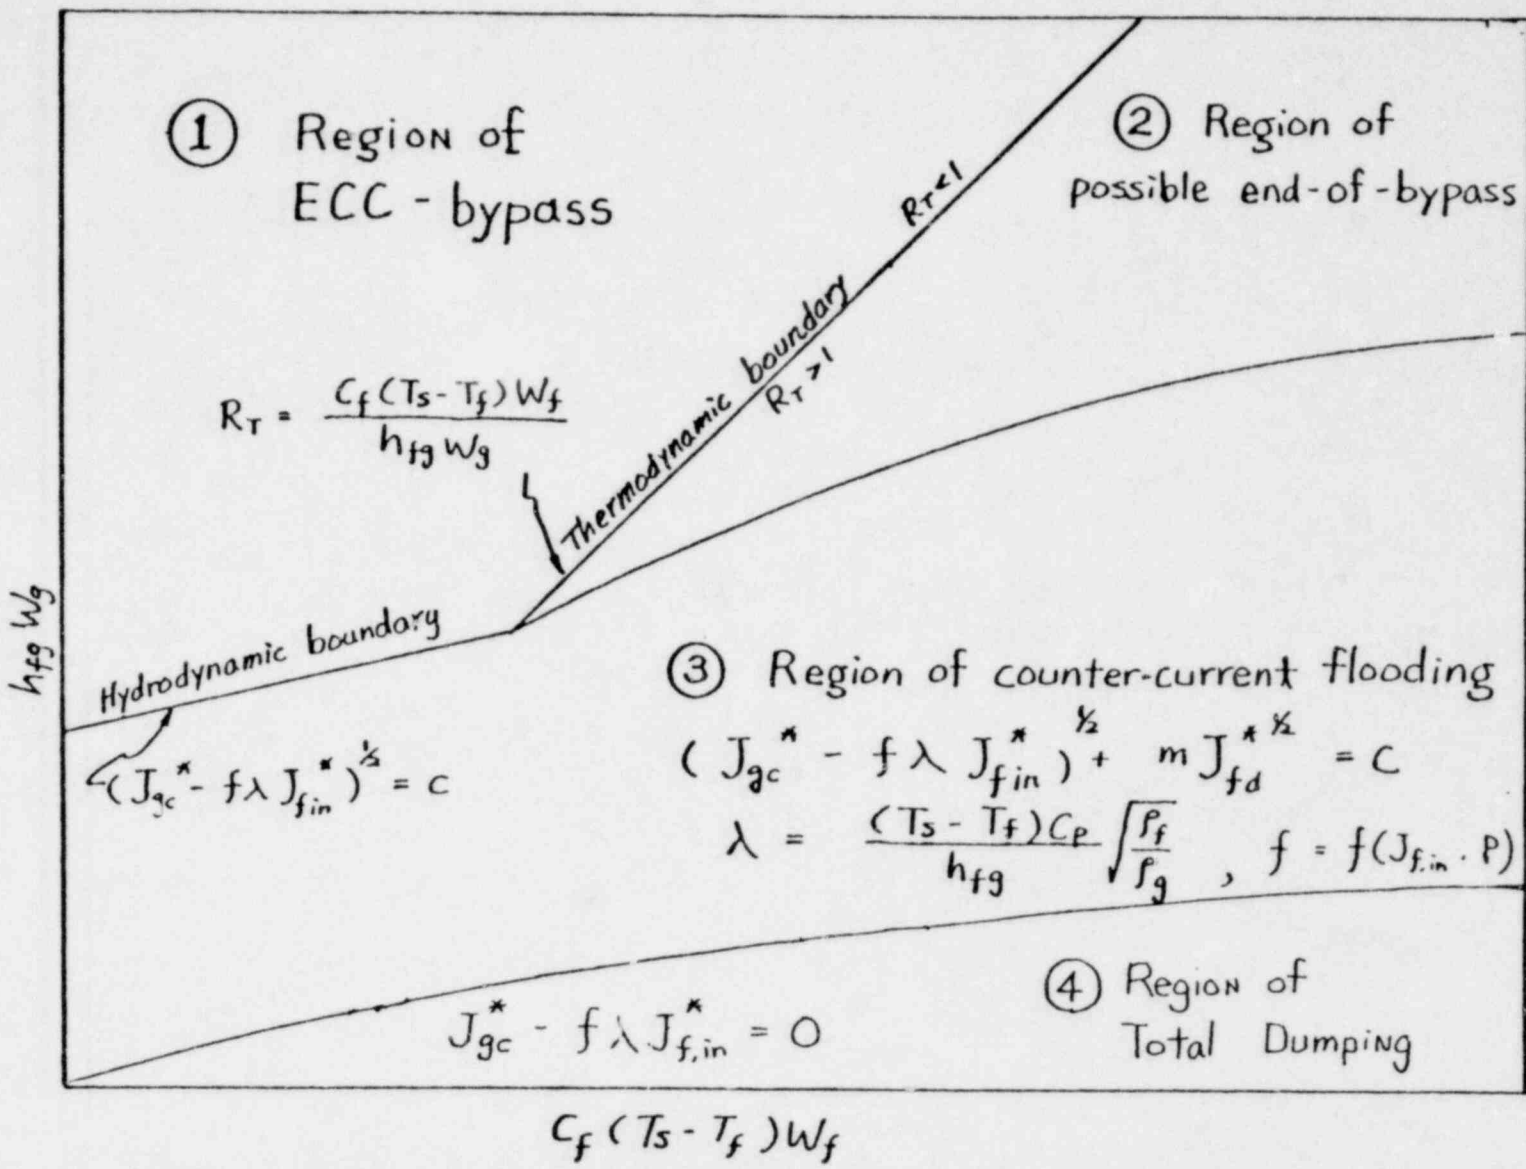 ① Region of
ECC - bypass
② Region of
possible end-of-bypass
R_T < 1
Thermodynamic boundary
R_T > 1
R_T = C_f (T_s - T_f) W_f / h_fg W_g
h_fg W_g
Hydrodynamic boundary
(J_gc^* - f λ J_f in^*)^½ = C
③ Region of counter-current flooding
(J_gc^* - f λ J_f in^*)^½ + m J_fd^*^½ = C
λ = (T_s - T_f) C_p / h_fg √(ρ_f / ρ_g) , f = f(J_f,in . P)
J_gc^* - f λ J_f,in^* = 0
④ Region of
Total Dumping
C_f (T_s - T_f) W_f